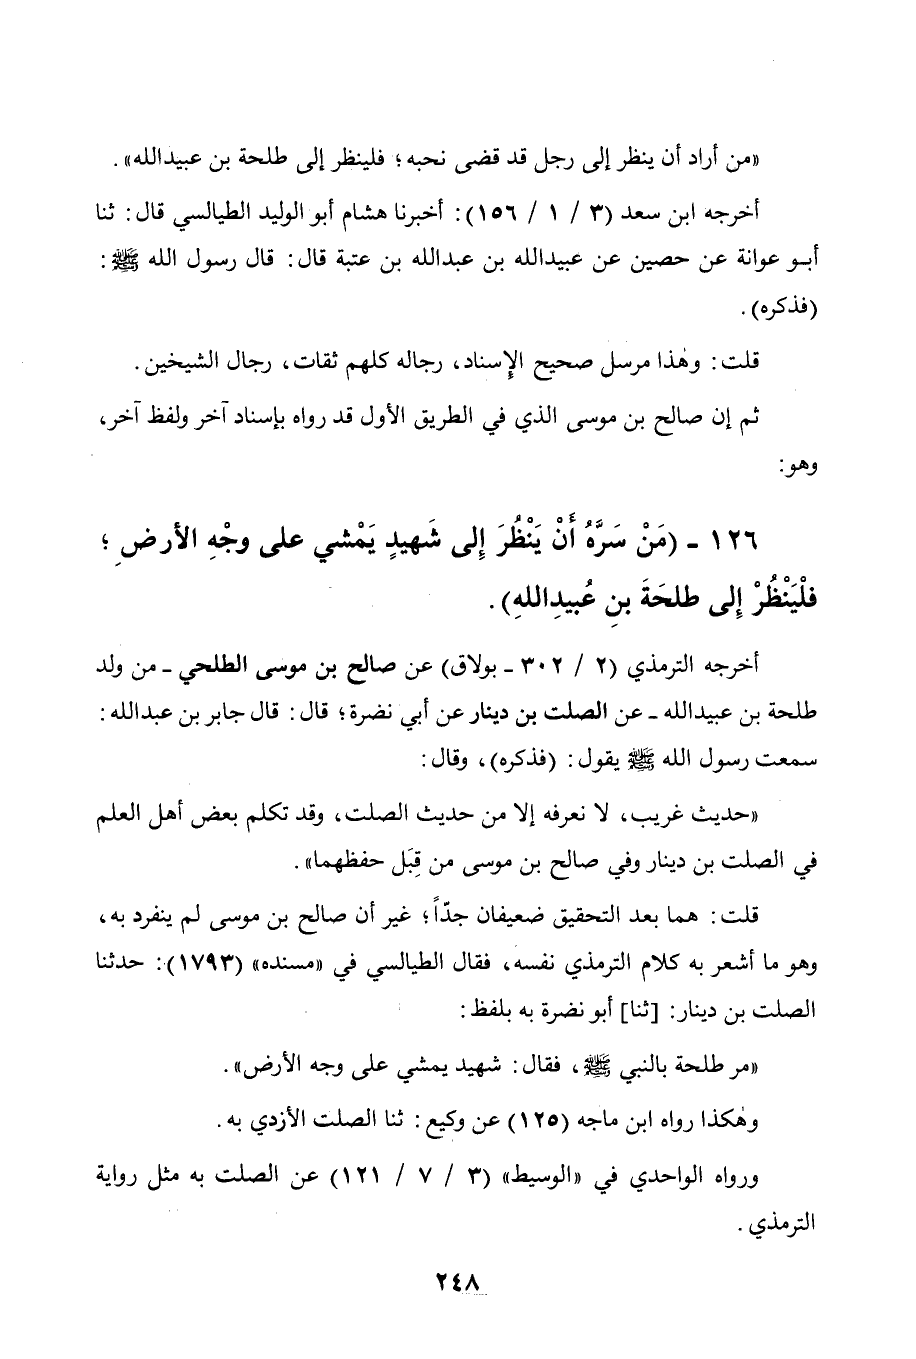 «من أراد أن ينظر إلى رجل قد قضى نحبه؛ فلينظر إلى طلحة بن عبيدالله».
أخرجه ابن سعد (٣ / ١ / ١٥٦): أخبرنا هشام أبو الوليد الطيالسي قال: ثنا
أبـو عوانة عن حصين عن عبيدالله بن عبدالله بن عتبة قال: قال رسول الله ﷺ:
(فذكره).
قلت: وهٰذا مرسل صحيح الإسناد، رجاله كلهم ثقات، رجال الشيخين.
ثم إن صالح بن موسى الذي في الطريق الأول قد رواه بإسناد آخر ولفظ آخر،
وهو:
١٢٦ ـ (مَنْ سَرَّهُ أَنْ يَنْظُرَ إِلى شَهيدٍ يَمْشي على وجْهِ الأرضِ؛
فلْيَنْظُرْ إِلى طلحَةَ بنِ عُبيدِاللهِ).
أخرجه الترمذي (٢ / ٣٠٢ ـ بولاق) عن صالح بن موسى الطلحي ـ من ولد
طلحة بن عبيدالله ـ عن الصلت بن دينار عن أبي نضرة؛ قال: قال جابر بن عبدالله:
سمعت رسول الله ﷺ يقول: (فذكره)، وقال:
«حديث غريب، لا نعرفه إلا من حديث الصلت، وقد تكلم بعض أهل العلم
في الصلت بن دينار وفي صالح بن موسى من قِبَل حفظهما».
قلت: هما بعد التحقيق ضعيفان جدّاً؛ غير أن صالح بن موسى لم ينفرد به،
وهو ما أشعر به كلام الترمذي نفسه، فقال الطيالسي في «مسنده» (١٧٩٣): حدثنا
الصلت بن دينار: [ثنا] أبو نضرة به بلفظ:
«مر طلحة بالنبي ﷺ، فقال: شهيد يمشي على وجه الأرض».
وهٰكذا رواه ابن ماجه (١٢٥) عن وكيع: ثنا الصلت الأزدي به.
ورواه الواحدي في «الوسيط» (٣ / ٧ / ١٢١) عن الصلت به مثل رواية
الترمذي.
٢٤٨